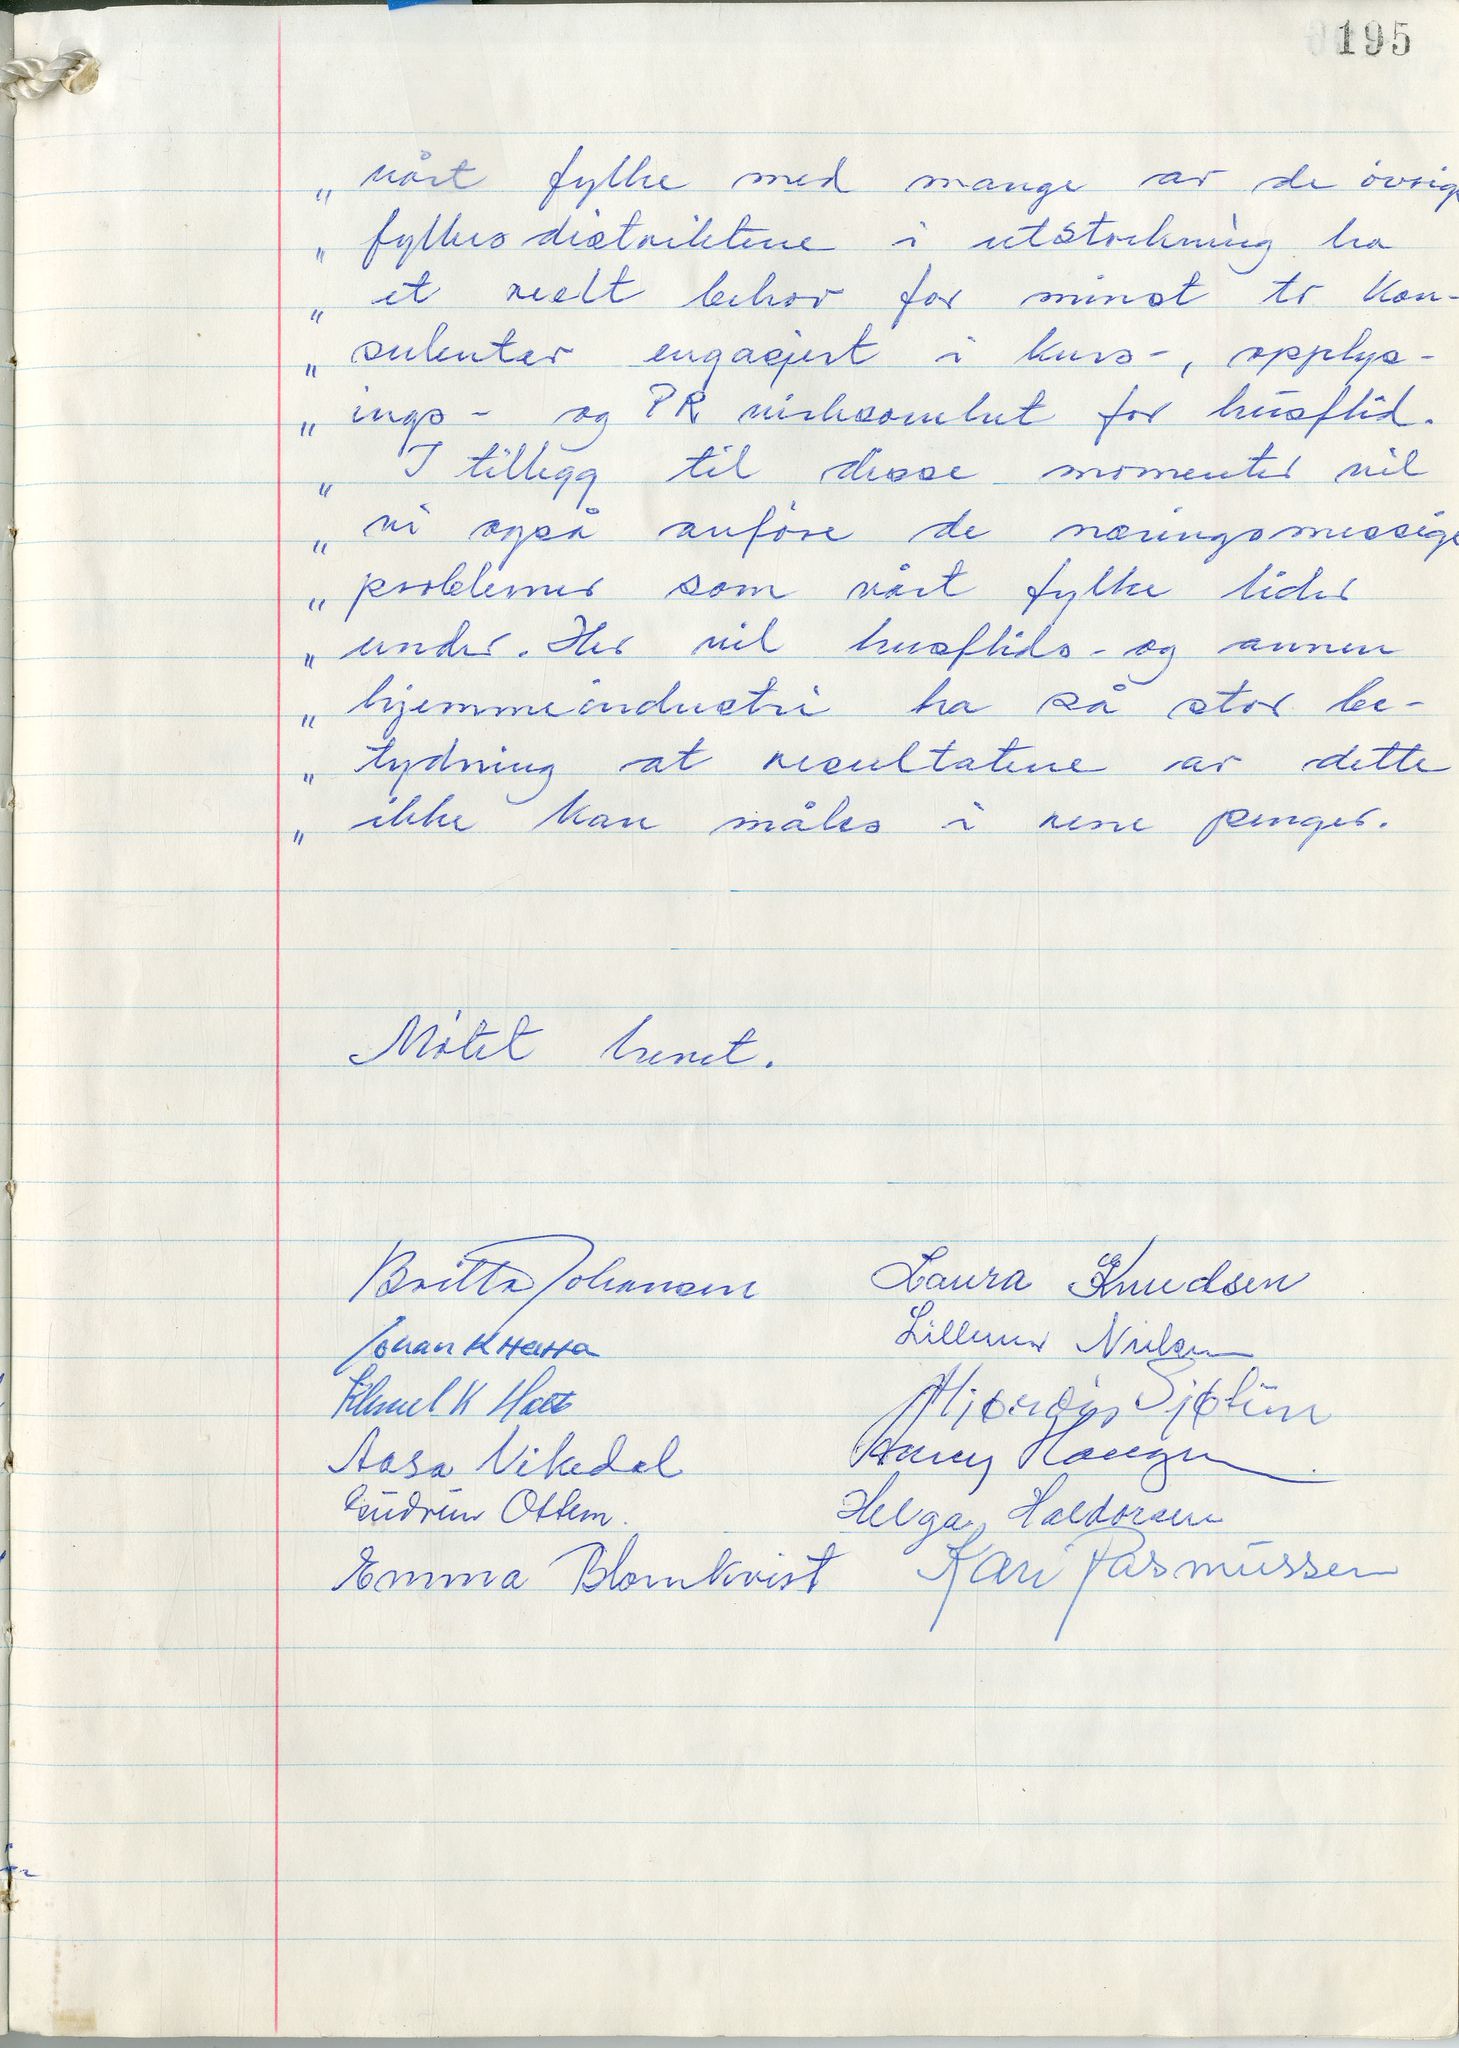 195
„ vårt fylke med mange av de øvrige
„ fylkesdistriktene i utstrekning ha
„ et reelt behov for minst to kon-
„ sulenter engasjert i kurs-, opplys-
„ ings- og PR virksomhet for husflid.
„ I tillegg til disse momenter vil
„ vi også anføre de næringsmessige
„ problemer som vårt fylke lider
„ under. Her vil husflids- og annen
„ hjemmeindustri ha så stor be-
„ tydning at resultatene av dette
„ ikke kan måles i rene penger.
Møtet hevet.
Britta Johansen Laura Knudsen
Johan K Lillemor Nielsen
K Hjørdis
Aasa Vikedal Haugen
Gudrun Ottem. Helga Haldorsen
Emma Blomkvist Kari Rasmussen